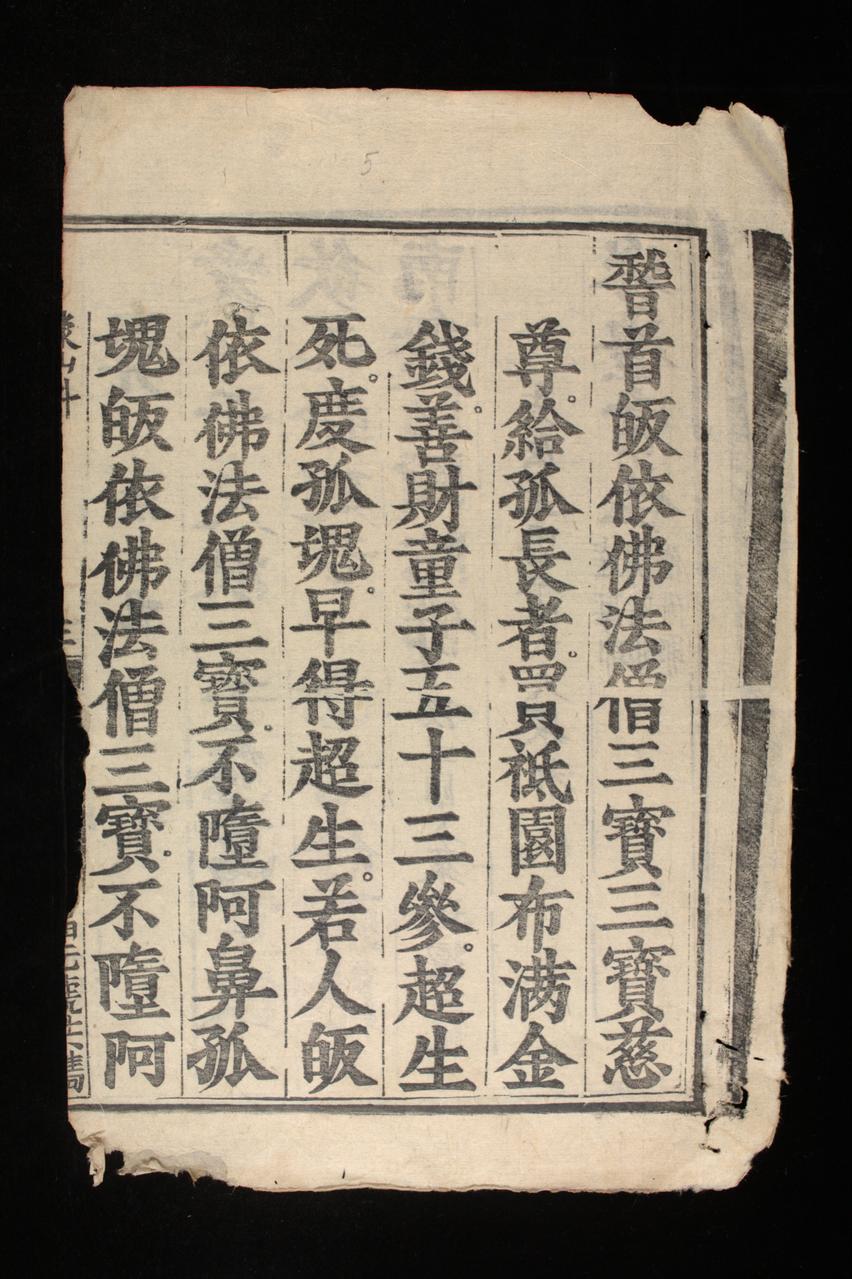 稽首皈依佛法僧三寶三寶慈
尊給孤長者買祇園布滿金
錢善財童子五十三參超生
死度孤塊早得超生若人皈
依佛法僧三寶不墮阿鼻孤
塊皈依佛法僧三寶不墮阿
5